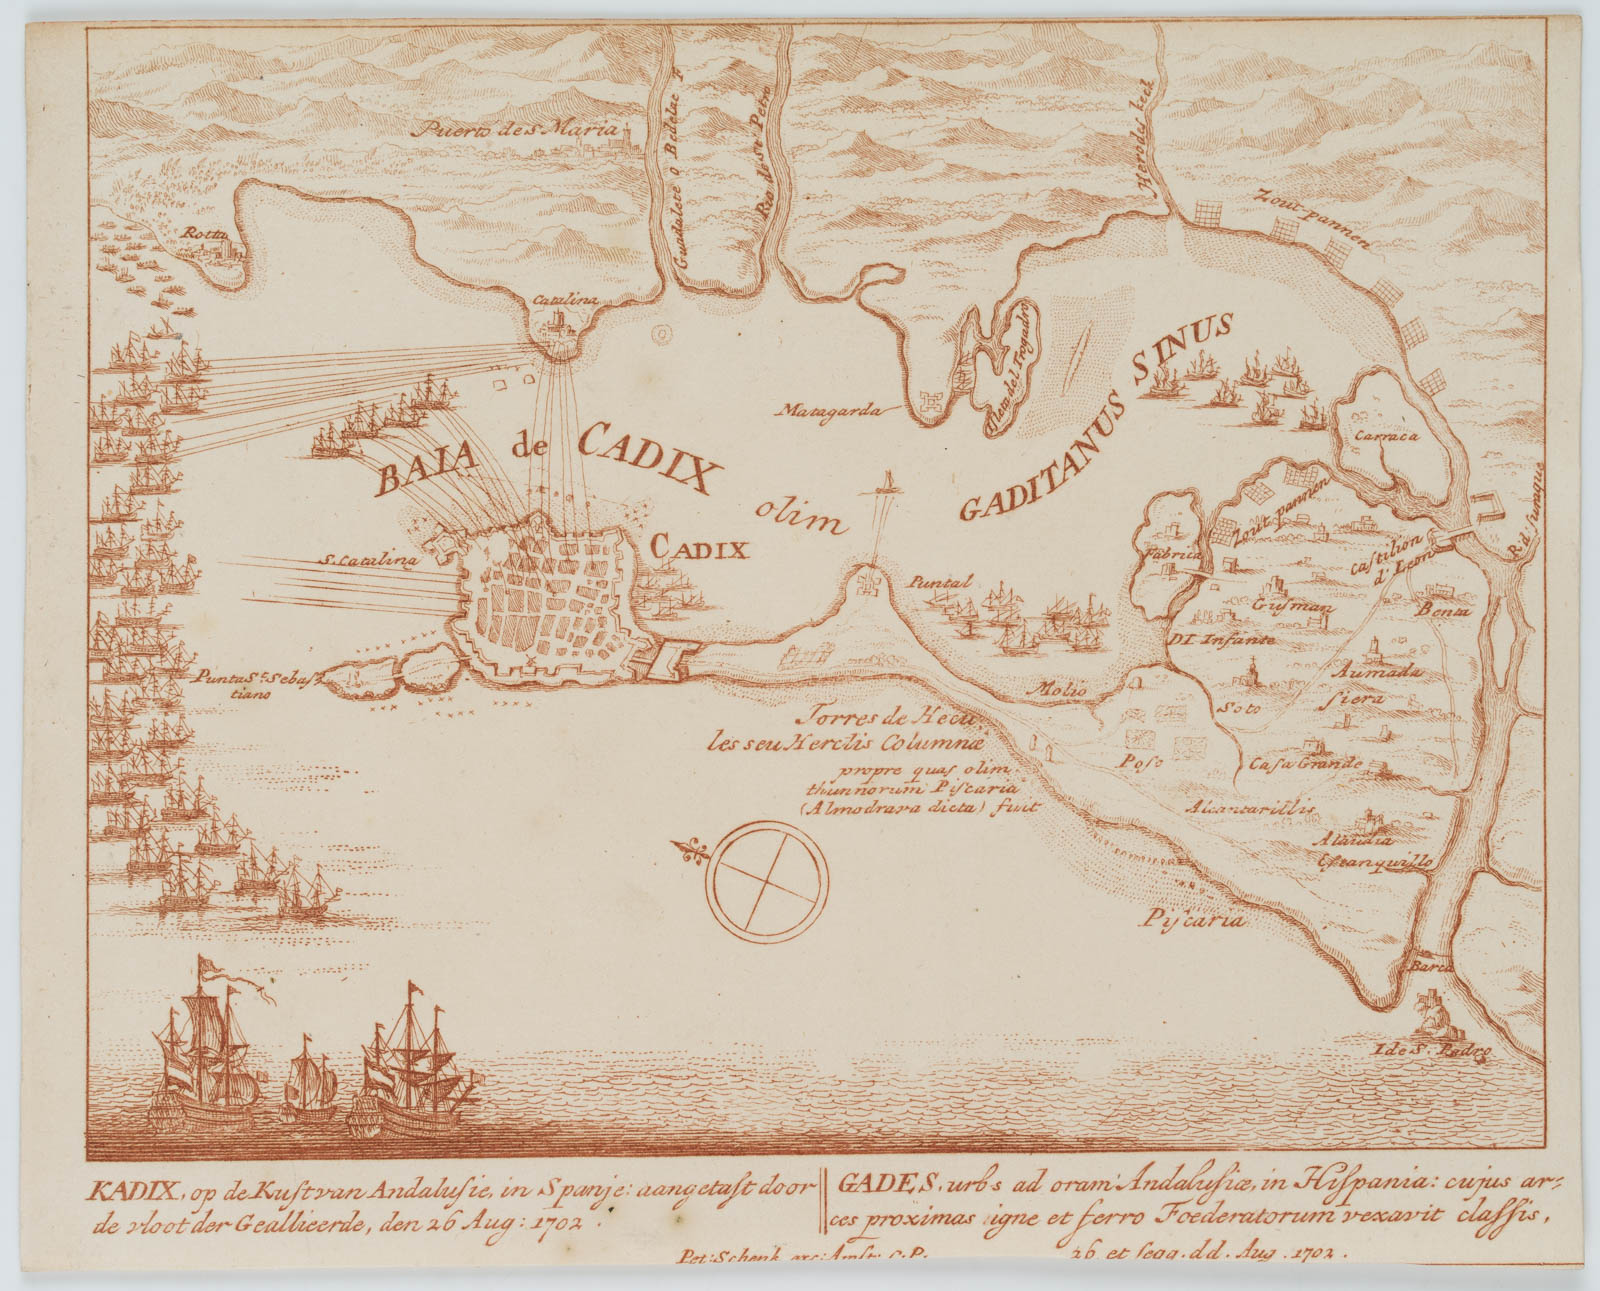 Puerto de S Maria
Rotta
Guadalete o Bedelac F
Rio de St Petro
Herodes keek
Zout pannen
Catalina
BAIA de CADIX
olim
GADITANUS SINUS
Matagarda
Ileta del Trogadro
Carraca
CADIX
S. Catalina
Punta St. Sebas
tiano
Puntal
Fabrica
Zout pannen
castilion
d' Leon
Gusman
Benta
DI Infante
Aumada
Siera
Soto
Molio
Torres de Hecu
les seu Herclis Columnæ
propre quas olim
thunnorum Piscaria
(Almodrava dicta) fuit
Poso
Casa Grande
Alcantarillis
Alaudia
Estanquillo
Piscaria
Barca
I de S. Pedro
KADIX, op de Kust van Andalusie, in Spanje: aangetast door
de vloot der Geallieerde, den 26 Aug: 1702.
GADES, urbs ad oram Andalusiæ, in Hispania: cujus ar=
ces proximas igne et ferro Foederatorum vexavit classis,
26 et seqq. dd. Aug. 1702.
Pet: Schenk exc: Amst: c. P.